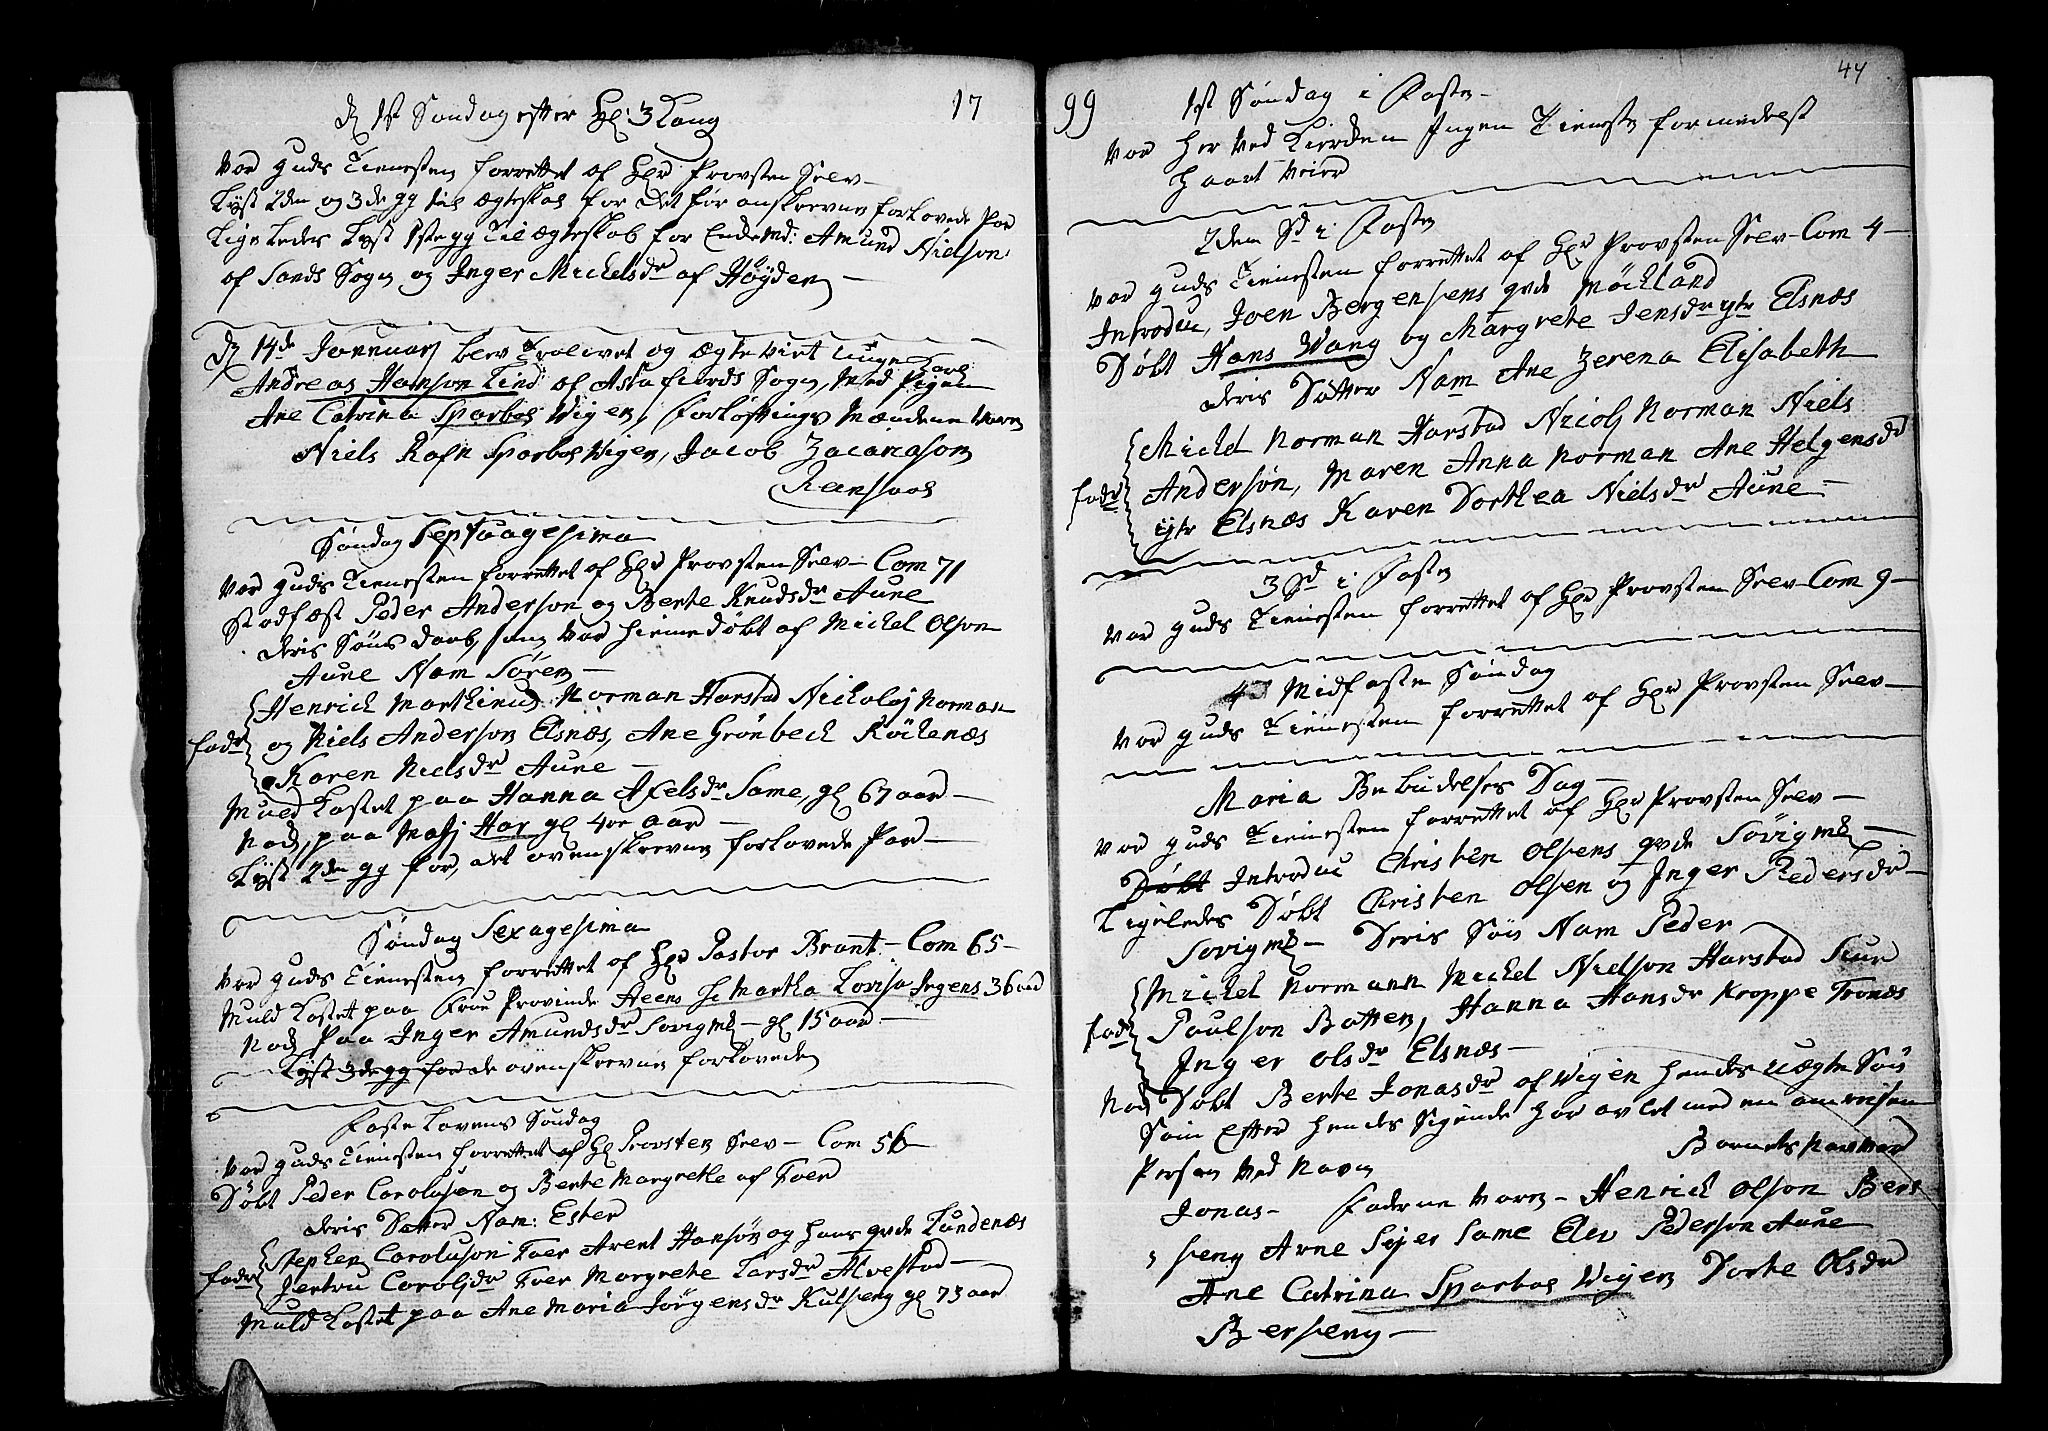 17
D 1st Søndag efter Hl: 3 Kong
Var Guds Tienesten forrettet af Hr Provsten Selv
Lyst 2den og 3de gg til ægteskab for det før anskrevne forlovede Par
Lige Ledes Lyst 1ste gg Til ægteskab for Md: Amund Nielson
af Sands Sogn og Inger Mickelsdr af Høyden
D 14de Januari blev Trolovet og ægteviet unge Karl
Andreas Hanson Lind af Astafiords Sogn, Med Pigen
Ane Catrina Sparbos Wigen, Forløftnings Mændene Varen
Niels Rafn Sparbos Wigen, Jacob Zacariason
Rensaas
Søndag Septuagesima
Var Guds Tienesten forrettet af Hr Provsten Selv - Com 71
Stadfæst Peder Anderson og Berte Knudsdr Aune
deris Søns daab, som Var hiemedøbt af Mickel Olson
Aune Nam Sören
Henrick Marthinus Norman Harstad Nickolaj Norman
fadr og Niels Anderson Elsnæs, Ane Grönbeck Röckenæs
Karen Nielsdr Aune
Muld Kastet paa Hanna Axelsdr Same, gl 67 aar
Nok, paa Masj Har gl 4re aar
Lyst 2den gg for, det ovenskrevne forlovede Par
Søndag Sexagesima
Var Guds Tienesten forrettet af Hr Pastor Brant - Com 65
Muld Kastet paa Frue Provinde Steens Martha Lovisa Irgens 36 aar
Nok Paa Inger Amundsdr Sovigml - gl 15 aar
Lyst 3de gg for de ovenskrevne forlovede
Faste Lavens Søndag
Var Guds Tienesten forrettet af Hl Provsten Selv - Com 56
Døbt Peder Carolusen og Berte Margrethe af Toer
deris Datter Nam: Ester
Stephen Caroluson Toer Arent Hansøn og hans qvde Lundenæs
fadr Jertru Carolsdr Toer Margrete Larsdr Alvestad
Muld Kastet paa Ane Maria Jörgensdr Kulseng gl 73 aar
99
44
1st Søndag i Faste
Var her Ved Kierken Ingen Tieneste formedelst
haart Veier
2den Sd i Faste
Var Guds Tienesten forrettet af Hr Provsten Selv - Com 4
Introdu, Joen Bergersens qvde Möckland
Døbt Hans Wang og Margrete Jensdr ytr Elsnæs
deris Datter Nam Ane Zerena Elisabeth
Mickel Norman Harstad Nicolj Norman Niels
fadr Andersön, Maren Anna Norman Ane Helgensdr
ytr Elsnæs Karen Dorthea Nielsdr Aune
3 Sd i Faste
Var Guds Tienesten forrettet af Hr Provsten Selv - Com 9
4 Midfaste Søndag
Var Guds Tienesten forrettet af Hr Provsten Selv
Maria Bebudelses Dag
Var Guds Tienesten forrettet af Hr Provsten Selv
Døbt Introduc Christen Olsens qvde Sövigml
Ligeledes Døbt Christen Olsen og Inger Pedersdr
Sovigml - Deris Sön Nam Peder
Mickel Normann Mickel Nielson Harstad Siur
fadr Paulson Batten, Hanna Hansdr Kroppe Tronæs
Inger Olsdr Elsnæs
Nok Døbt Berte Jonasdr af Wigen hendes uægte Sön
Som Efter hendes Sigende har avlet med en omreisen
Person Ved Navn Barnets Nav var
Jonas - Faderne Varen - Henrick Olson Bers
seng Arne Sejer Same Elev Pederson Aune
Ane Catrina Sparbos Wigen Dorte Olsdr
Berseng